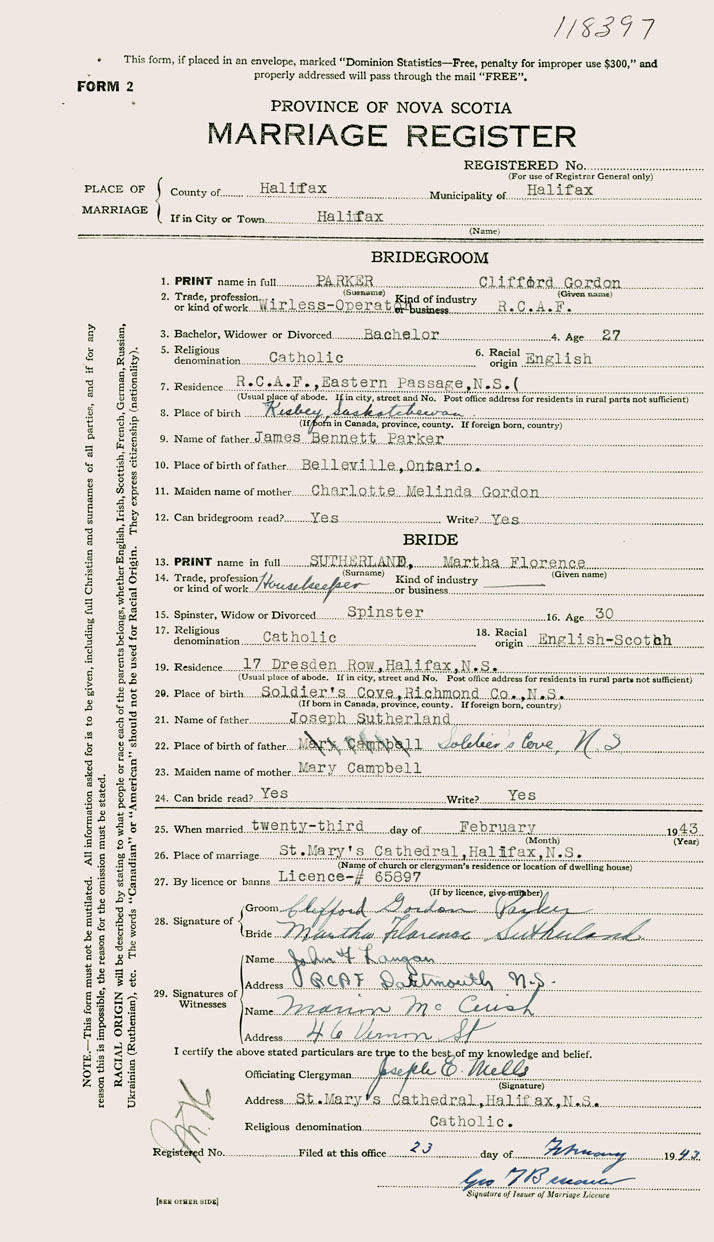 118397
This form, if placed in an envelope, marked "Dominion Statistics—Free, penalty for improper use $300," and
properly addressed will pass through the mail "FREE".
FORM 2
PROVINCE OF NOVA SCOTIA
MARRIAGE REGISTER
REGISTERED No.
(For use of Registrar General only)
PLACE OF MARRIAGE
County of Halifax Municipality of Halifax
If in City or Town Halifax
(Name)
BRIDEGROOM
1. PRINT name in full PARKER Clifford Gordon
(Surname) (Given name)
2. Trade, profession or kind of work Wirless-Operator Kind of industry or business R.C.A.F.
3. Bachelor, Widower or Divorced Bachelor 4. Age 27
5. Religious denomination Catholic 6. Racial origin English
7. Residence R.C.A.F.,Eastern Passage,N.S.(
(Usual place of abode. If in city, street and No. Post office address for residents in rural parts not sufficient)
8. Place of birth Kisbey, Saskatchewan
(If born in Canada, province, county. If foreign born, country)
9. Name of father James Bennett Parker
10. Place of birth of father Belleville,Ontario.
11. Maiden name of mother Charlotte Melinda Gordon
12. Can bridegroom read? Yes Write? Yes
BRIDE
13. PRINT name in full SUTHERLAND, Martha Florence
(Surname) (Given name)
14. Trade, profession or kind of work Housekeeper Kind of industry or business
15. Spinster, Widow or Divorced Spinster 16. Age 30
17. Religious denomination Catholic 18. Racial origin English-Scotch
19. Residence 17 Dresden Row,Halifax,N.S.
(Usual place of abode. If in city, street and No. Post office address for residents in rural parts not sufficient)
20. Place of birth Soldier's Cove,Richmond Co.,N.S.
(If born in Canada, province, county. If foreign born, country)
21. Name of father Joseph Sutherland
22. Place of birth of father Mary Campbell Soldier's Cove, N.S
23. Maiden name of mother Mary Campbell
24. Can bride read? Yes Write? Yes
25. When married twenty-third day of February 1943
(Month) (Year)
26. Place of marriage St.Mary's Cathedral,Halifax,N.S.
(Name of church or clergyman's residence or location of dwelling house)
27. By licence or banns Licence-# 65897
(If by licence, give number)
28. Signature of
Groom Clifford Gordon Parker
Bride Martha Florence Sutherland
29. Signatures of Witnesses
Name John F Langan
Address RCAF Dartmouth N.S.
Name Marion Mc
Address 46 Vernon St
I certify the above stated particulars are true to the best of my knowledge and belief.
Officiating Clergyman Joseph E. Mills
(Signature)
Address St.Mary's Cathedral,Halifax,N.S.
Religious denomination Catholic.
Registered No. Filed at this office 23 day of February 1943
Signature of Issuer of Marriage Licence
[SEE OTHER SIDE]
NOTE.—This form must not be mutilated. All information asked for is to be given, including full Christian and surnames of all parties, and if for any
reason this is impossible, the reason for the omission must be stated.
RACIAL ORIGIN will be described by stating to what people or race each of the parents belongs, whether English, Irish, Scottish, French, German, Russian,
Ukrainian (Ruthenian), etc. The words "Canadian" or "American" should not be used for Racial Origin. They express citizenship (nationality).